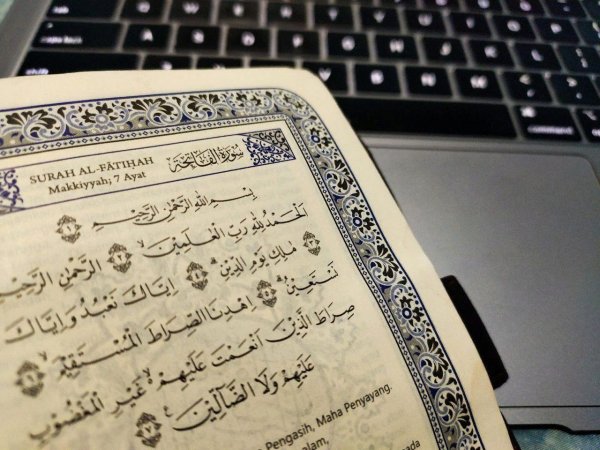 command
SURAH AL-FĀTIḤAH
سُوْرَةُ الْفَاتِحَةِ
Makkiyyah; 7 Ayat
بِسْمِ اللّٰهِ الرَّحْمٰنِ الرَّحِيْمِ ١
اَلْحَمْدُ لِلّٰهِ رَبِّ الْعٰلَمِيْنَۙ ٢ الرَّحْمٰنِ الرَّحِيْمِ
٣ مٰلِكِ يَوْمِ الدِّيْنِۗ ٤ اِيَّاكَ نَعْبُدُ وَاِيَّاكَ
نَسْتَعِيْنُۗ ٥ اِهْدِنَا الصِّرَاطَ الْمُسْتَقِيْمَۙ ٦
صِرَاطَ الَّذِيْنَ اَنْعَمْتَ عَلَيْهِمْ ەۙ غَيْرِ الْمَغْضُوْبِ
عَلَيْهِمْ وَلَا الضَّاۤلِّيْنَ ٧
Pengasih, Maha Penyayang.
alam,